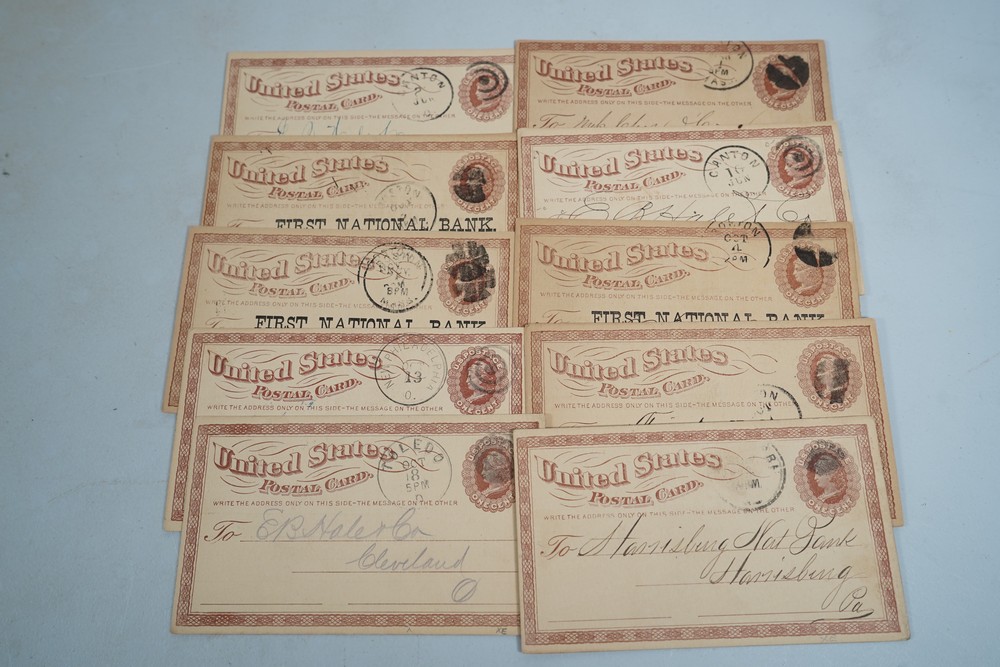 United States
POSTAL CARD.
WRITE THE ADDRESS ONLY ON THIS SIDE-THE MESSAGE ON THE OTHER
ANTON
JUN
United States
POSTAL CARD.
WRITE THE ADDRESS ONLY ON THIS SIDE-THE MESSAGE ON THE OTHER
PM
To
United States
POSTAL CARD.
FIRST NATIONAL BANK.
United States
POSTAL CARD.
WRITE THE ADDRESS ONLY ON THIS SIDE-THE MESSAGE ON THE OTHER
CANTON
16
JUN
United States
POSTAL CARD.
WRITE THE ADDRESS ONLY ON THIS SIDE-THE MESSAGE ON THE OTHER
8PM
MASS.
FIRST NATIONAL BANK
United States
POSTAL CARD.
WRITE THE ADDRESS ONLY ON THIS SIDE-THE MESSAGE ON THE OTHER
OCT
PM
FIRST NATIONAL BANK
United States
POSTAL CARD.
WRITE THE ADDRESS ONLY ON THIS SIDE-THE MESSAGE ON THE OTHER
NEW PHILADELPHIA
13
O.
U.S. POSTAGE
ONE CENT
United States
POSTAL CARD.
WRITE THE ADDRESS ONLY ON THIS SIDE-THE MESSAGE ON THE OTHER
ON
United States
POSTAL CARD.
WRITE THE ADDRESS ONLY ON THIS SIDE-THE MESSAGE ON THE OTHER
TOLEDO
OCT
18
5PM
O
U.S. POSTAGE
ONE CENT
To E.B. Hale & Co
Cleveland
O
United States
POSTAL CARD.
WRITE THE ADDRESS ONLY ON THIS SIDE-THE MESSAGE ON THE OTHER
To Harrisburg Nat Bank
Harrisburg
Pa